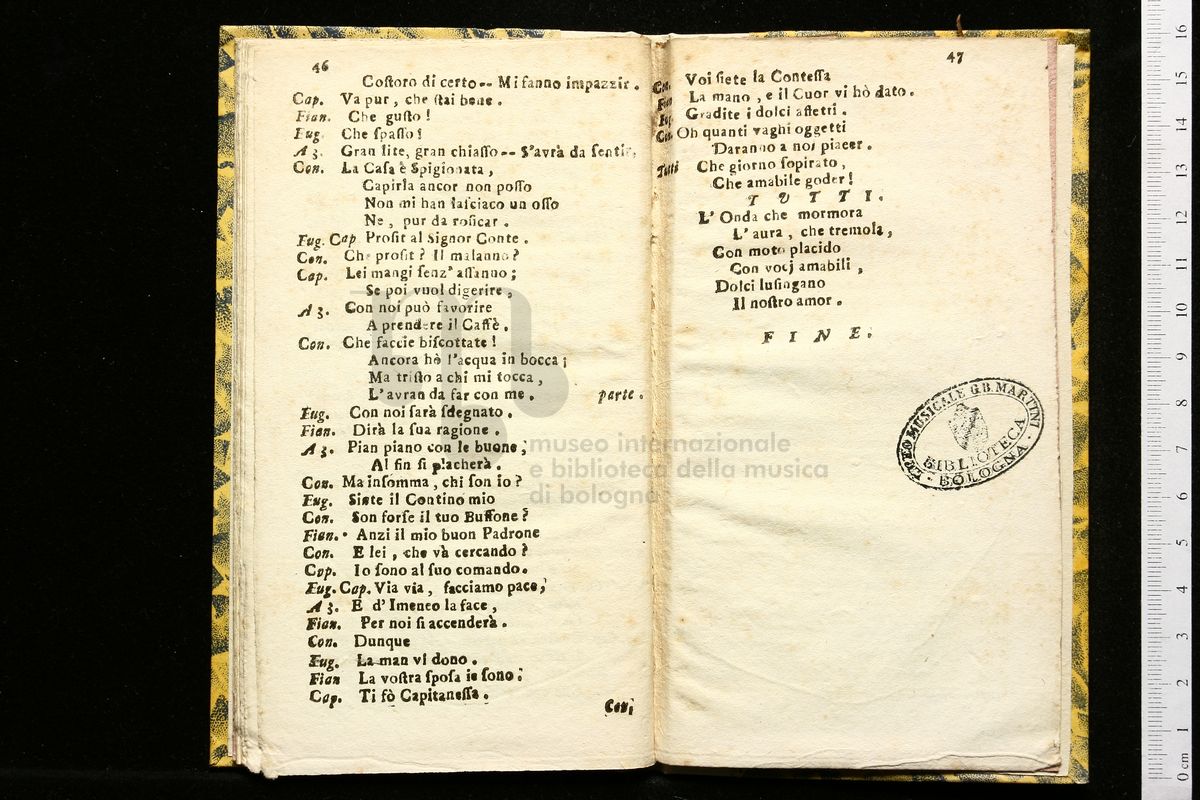 46
Coſtoro di certo -- Mi fanno impazzir .
Cap. Va pur , che ſtai bene .
Fian. Che guſto !
Eug. Che ſpaſſo !
A 3. Gran lite, gran chiaſſo -- S'avrà da ſentir.
Con. La Caſa è Spigionata ,
Capirla ancor non poſſo
Non mi han laſciaco un oſſo
Ne , pur da roſicar .
Eug. Cap Profit al Signor Conte .
Con. Che profit ? Il malanno ?
Cap. Lei mangi ſenz' aſſanno ;
Se poi vuol digerire ,
A 3. Con noi può favorire
A prendere il Caffè .
Con. Che faccie biſcottate !
Ancora hò l'acqua in bocca ;
Ma triſto a chi mi tocca ,
L'avran da far con me . parte .
Eug. Con noi ſarà ſdegnato .
Fian. Dirà la ſua ragione .
A 3. Pian piano con le buone ;
Al fin ſi placherà .
Con. Ma inſomma , chi ſon io ?
Eug. Siete il Contino mio
Con. Son forſe il tuo Buffone ?
Fian. Anzi il mio buon Padrone
Con. E lei , che và cercando ?
Cap. Io ſono al ſuo comando .
Eug. Cap. Via via , facciamo pace ;
A 3. E d'Imeneo la face ,
Fian. Per noi ſi accenderà .
Con. Dunque
Eug. La man vi dono .
Fian La voſtra ſpoſa io ſono :
Cap. Ti fò Capitaneſſa .
Con;
47
Con. Voi ſiete la Conteſſa
Fian La mano , e il Cuor vi hò dato .
Eug. Gradite i dolci affetri .
Con. Oh quanti vaghi oggetti
Daranno a noi piacer .
Tutti Che giorno ſopirato ,
Che amabile goder !
T U T T I .
L' Onda che mormora
L' aura , che tremola ,
Con moto placido
Con vocj amabili ,
Dolci luſingano
Il noſtro amor .
F I N E .
LICEO MUSICALE G.B. MARTINI
BIBLIOTECA
· BOLOGNA ·
museo internazionale
e biblioteca della musica
di bologna
0 cm 1 2 3 4 5 6 7 8 9 10 11 12 13 14 15 16